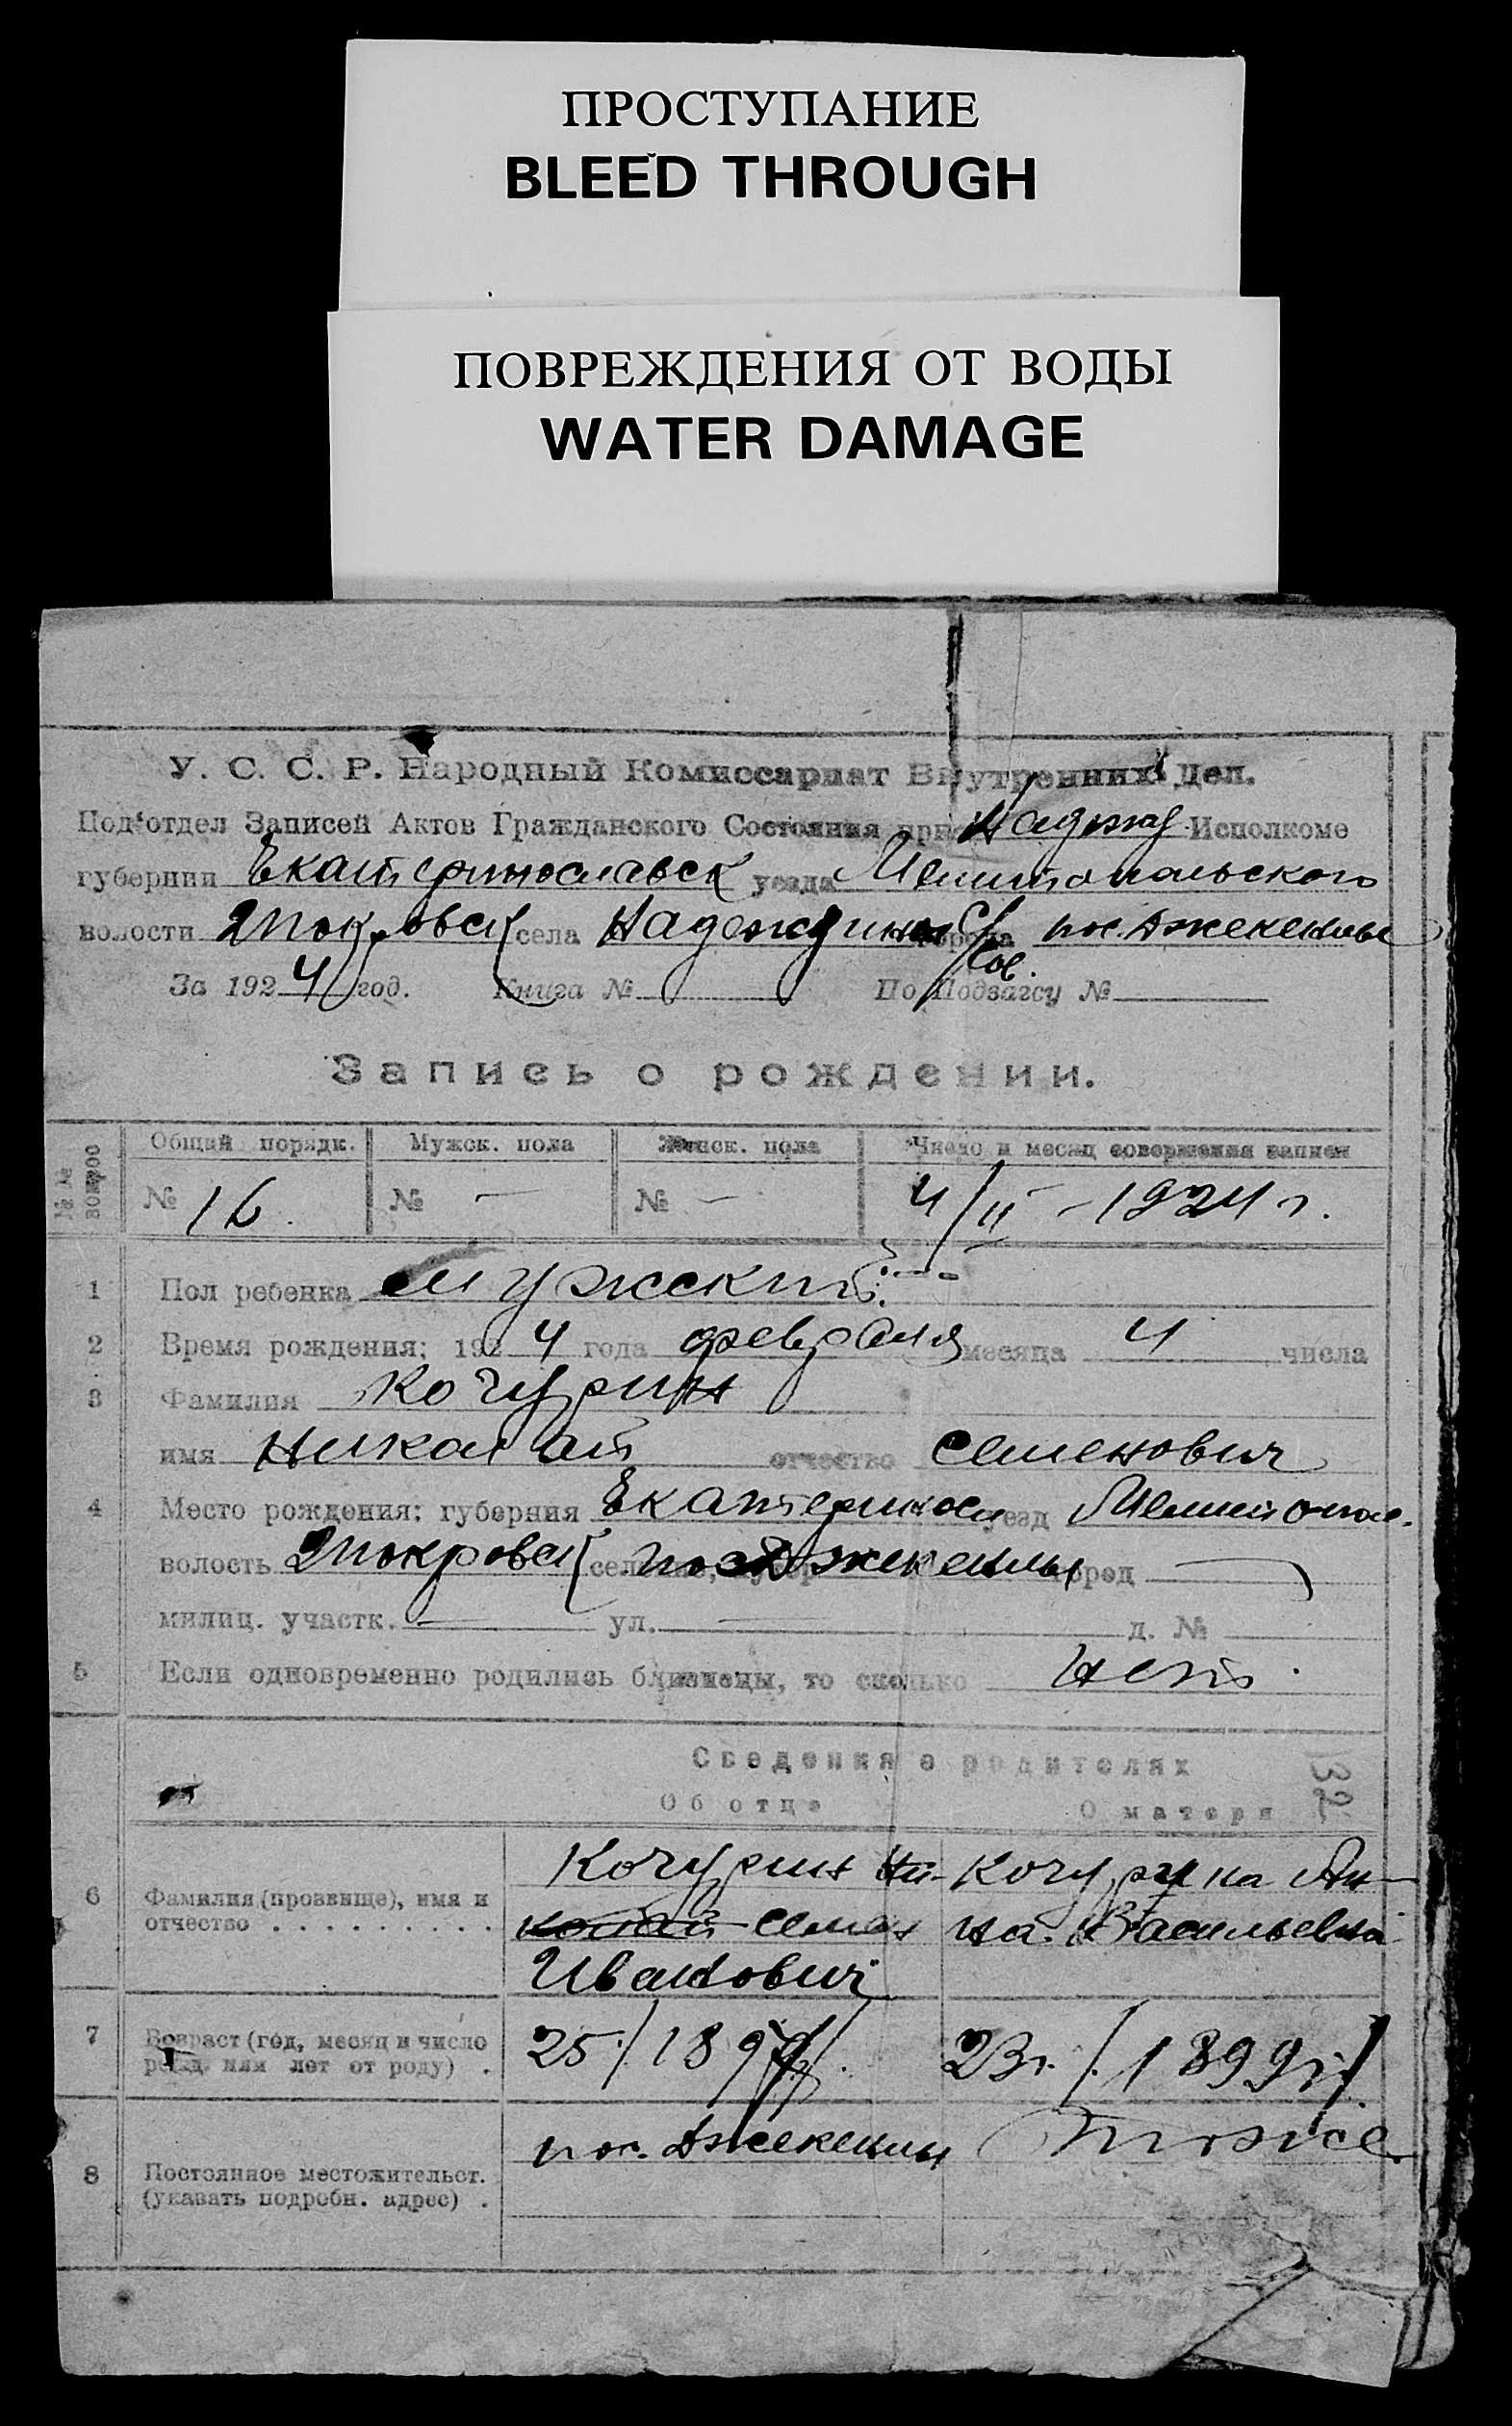 ПРОСТУПАНИЕ
BLEED THROUGH
ПОВРЕЖДЕНИЯ ОТ ВОДЫ
WATER DAMAGE
У. С. С. Р. Народный Комиссариат Внутренних Дел.
Под'отдел Записей Актов Гражданского Состояния при Надежд. Исполкоме
губернии Екатеринославск уезда Мелитопольского
волости Покровск села Надеждинск города пос. Ажекелы
Сов.
За 1924 год. Книга № По Подзагсу №
Запись о рождении.
№ № вопрос Общий порядк. Мужск. пола Женск. пола Число и месяц совершения записи
№ 16. № — № — 4/II – 1924 г.
1 Пол ребенка мужской
2 Время рождения: 1924 года февраля месяца 4 числа
3 Фамилия Кочурин
имя Николай отчество Семенович
4 Место рождения: губерния Екатеринос уезд Мелитопол.
волость Покровск селение, хутор пос город —
милиц. участк. — ул. — д. №
5 Если одновременно родились близнецы, то сколько нет.
Сведения о родителях
32
Об отце О матери
Кочурин Ни- Кочурина Ан-
6 Фамилия (прозвище), имя и
отчество . . . . . . . . . колай Семен на Васильевна
Иванович
7 Возраст (год, месяц и число 25 /189 23 г. /1899 г/
рожд. или лет от роду) .
пос. тоже
8 Постоянное местожительст.
(указать подробн. адрес) .